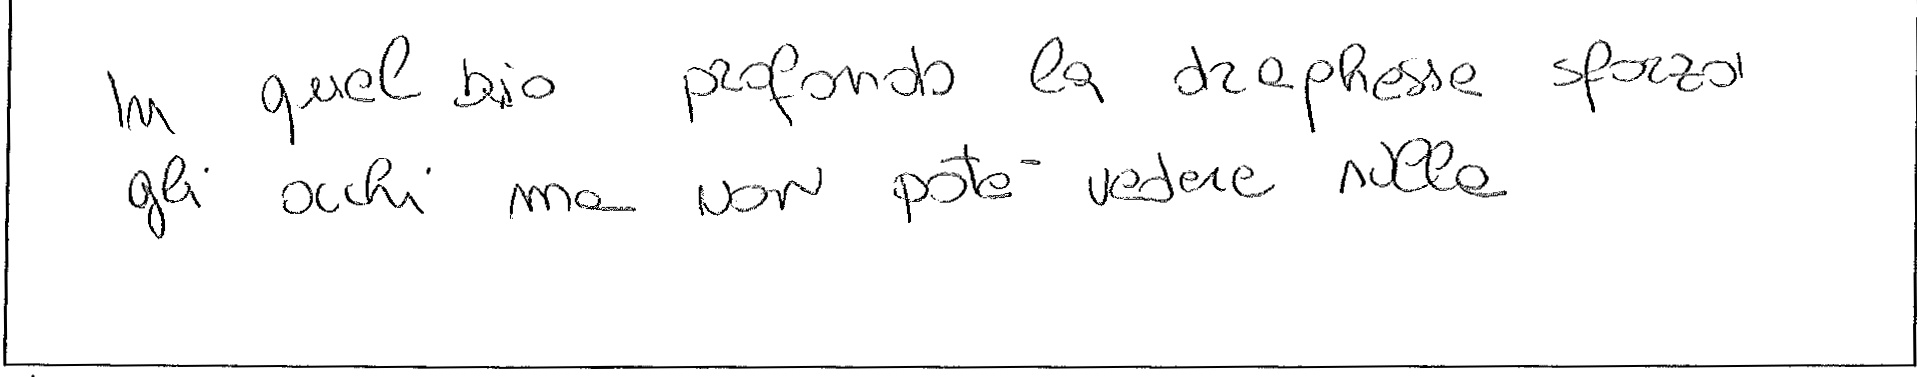 In quel bio profondo la draphesse sforzò
gli occhi ma non potè vedere nulla